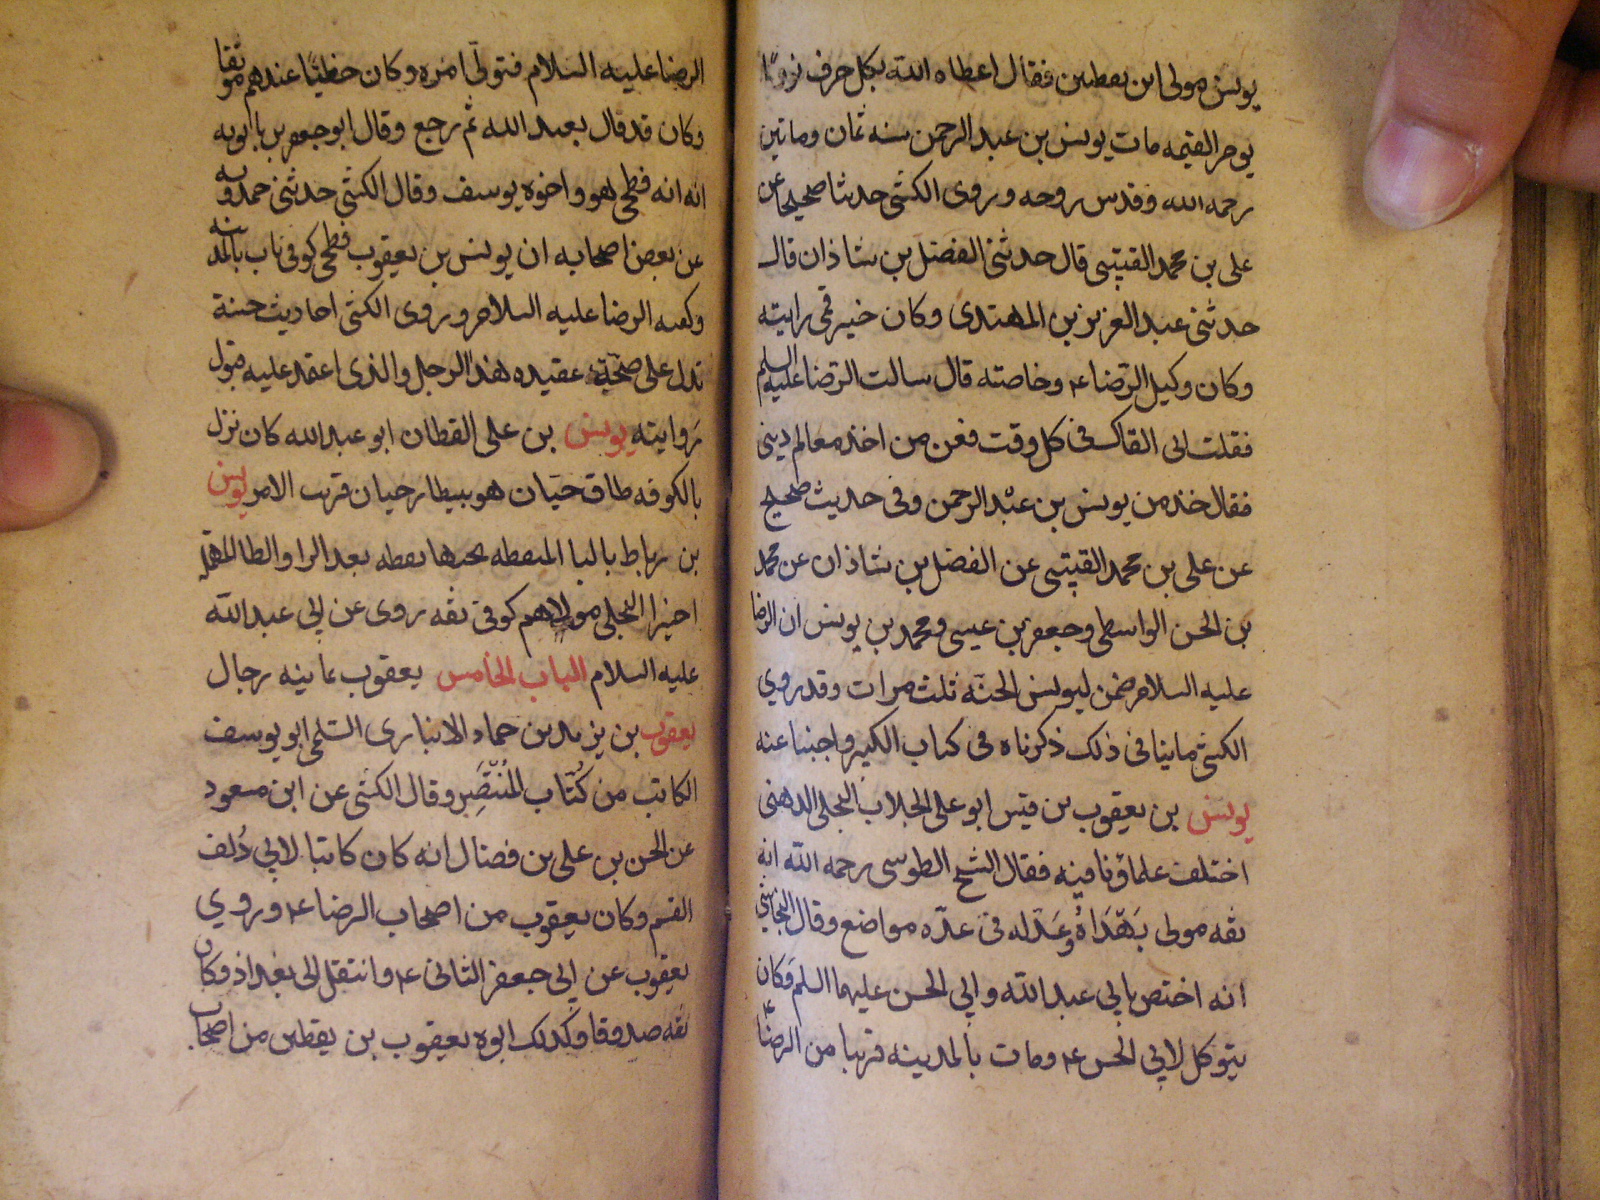 يونس مولى ابن يقطين فقال اعطاه الله بكل حرف نورًا
يوم القيمه مات يونس بن عبد الرحمن سنه ثمان وماتين
رحمه الله وقدس روحه وروى الكشي حديثا صحيحا عن
على بن محمد القتيبى قال حدثنى الفضل بن شاذان قال
حدثنى عبد العزيز بن المهتدى وكان خير قمى رايته
وكان وكيل الرّضا ع وخاصته قال سالت الرّضا عليه السلم
فقلت انى القاك فى كل وقت فعن من اخذ معالم دينى
فقال خذ من يونس بن عبد الرحمن وفى حديث صحيح
عن على بن محمد القتيبى عن الفضل بن شاذان عن محمد
بن الحسن الواسطى وجعفر بن عيسى ومحمد بن يونس ان الرضا
عليه السلام ضمن ليونس الجنّه ثلث مرات وقد روى
الكشي ما ينافى ذلك ذكرناه فى كتاب الكبير واجبنا عنه
يونس بن يعقوب بن قيس ابو على الجلاب البجلى الدهنى
اختلف علماؤنا فيه فقال الشيخ الطوسى رحمه الله انه
ثقه مولى له وعدله فى عدّه مواضع وقال النجاشي
انه اختص بابى عبد الله وابى الحسن عليهما السلم وكان
يتوكل لابى الحسن ع ومات بالمدينه قريبا من الرضا ع
الرضا عليه السلام فتولّى امره وكان حظيّا عندهم موثقا
وكان قد قال بعبد الله ثم رجع وقال ابو جعفر بن بابويه
انه انه فطحى هو واخوه يوسف وقال الكشي حدثنى حمدويه
عن بعض اصحابه ان يونس بن يعقوب فطحى كوفى مات بالمدينه
وكفنه الرضا عليه السلام وروى الكشي احاديث حسنة
تدل على صحّة عقيده هذا الرجل والذى اعتمد عليه قبول
روايته يونس بن على القطان ابو عبد الله كان نزل
بالكوفه طاق حيّان هو بيطار حيان قريب الامر يونس
بن رباط بالبا المنقطه تحتها نقطه بعد الرا والطا المهملة
اخيرا البجلى مولاهم كوفى ثقه روى عن ابى عبد الله
عليه السلام الباب الخامس يعقوب ثمانيه رجال
يعقوب بن يزيد بن حماد الانبارى السّلمى ابو يوسف
الكاتب من كُتّاب المُنتَصِر وقال الكشي عن ابن مسعود
عن الحسن بن على بن فضال انه كان كاتبا لابى دُلف
القسم وكان يعقوب من اصحاب الرضا ع وروى
يعقوب عن ابى جعفر الثانى ع وانتقل الى بغداد وكان
ثقه صدوقا وكذلك ابوه يعقوب بن يقطين من اصحاب